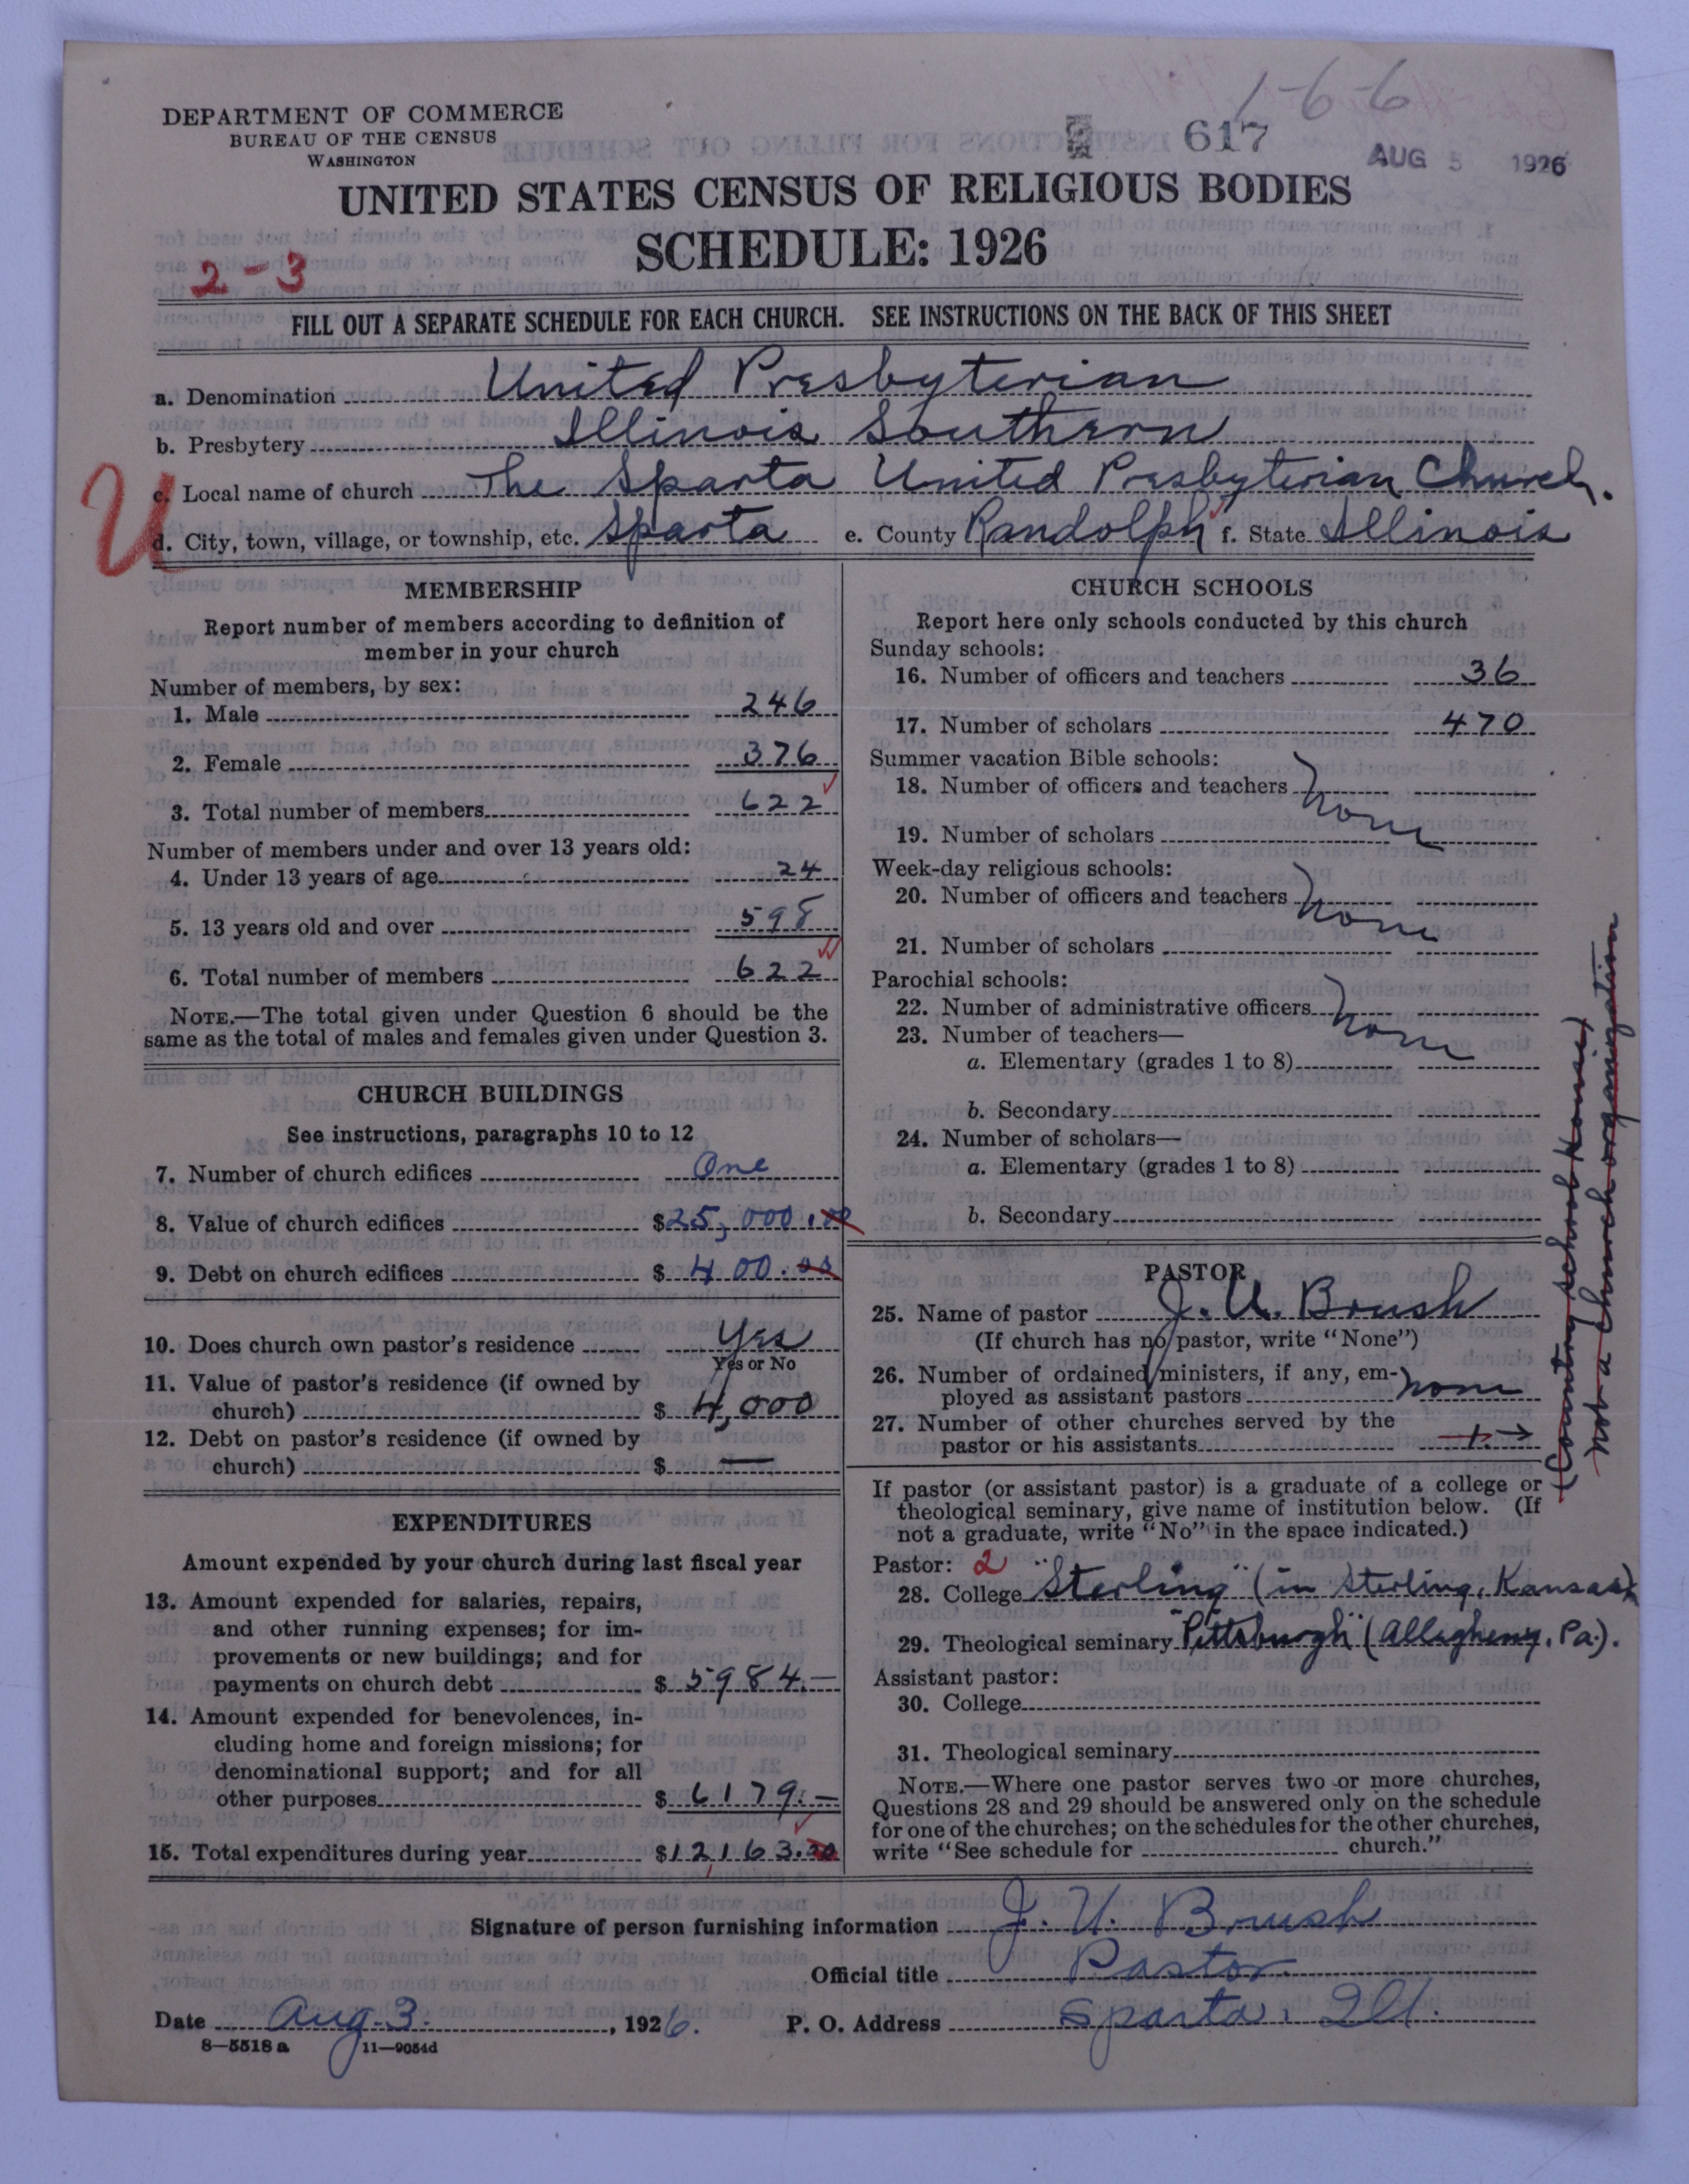 1-6-6
DEPARTMENT OF COMMERCE
BUREAU OF THE CENSUS
WASHINGTON
617
AUG 5 1926
UNITED STATES CENSUS OF RELIGIOUS BODIES
SCHEDULE: 1926
2-3
FILL OUT A SEPARATE SCHEDULE FOR EACH CHURCH. SEE INSTRUCTIONS ON THE BACK OF THIS SHEET
a. Denomination United Presbyterian
b. Presbytery Illinois Southern
U
c. Local name of church The Sparta United Presbyterian Church.
d. City, town, village, or township, etc. Sparta e. County Randolph f. State Illinois
MEMBERSHIP
Report number of members according to definition of
member in your church
Number of members, by sex:
1. Male 246
2. Female 376
3. Total number of members 622
Number of members under and over 13 years old:
4. Under 13 years of age 24
5. 13 years old and over 598
6. Total number of members 622
NOTE.—The total given under Question 6 should be the
same as the total of males and females given under Question 3.
CHURCH BUILDINGS
See instructions, paragraphs 10 to 12
7. Number of church edifices One
8. Value of church edifices $25,000.00
9. Debt on church edifices $ 400.00
10. Does church own pastor's residence Yes
Yes or No
11. Value of pastor's residence (if owned by
church) $ 4,000
12. Debt on pastor's residence (if owned by
church) $ —
EXPENDITURES
Amount expended by your church during last fiscal year
13. Amount expended for salaries, repairs,
and other running expenses; for im-
provements or new buildings; and for
payments on church debt $ 5984.—
14. Amount expended for benevolences, in-
cluding home and foreign missions; for
denominational support; and for all
other purposes $ 6179.—
15. Total expenditures during year $12,163.00
CHURCH SCHOOLS
Report here only schools conducted by this church
Sunday schools:
16. Number of officers and teachers 36
17. Number of scholars 470
Summer vacation Bible schools:
18. Number of officers and teachers
none
19. Number of scholars
Week-day religious schools:
20. Number of officers and teachers
none
21. Number of scholars
Parochial schools:
22. Number of administrative officers
none
23. Number of teachers—
a. Elementary (grades 1 to 8)
b. Secondary
24. Number of scholars—
a. Elementary (grades 1 to 8)
b. Secondary
PASTOR
25. Name of pastor J. U. Brush
(If church has no pastor, write "None")
26. Number of ordained ministers, if any, em-
ployed as assistant pastors none
27. Number of other churches served by the
pastor or his assistants 1. →
(Country school house)
not a church organization
If pastor (or assistant pastor) is a graduate of a college or
theological seminary, give name of institution below. (If
not a graduate, write "No" in the space indicated.)
Pastor: 2
28. College "Sterling" (in Sterling, Kansas)
29. Theological seminary "Pittsburgh" (Allegheny, Pa.).
Assistant pastor:
30. College
31. Theological seminary
NOTE.—Where one pastor serves two or more churches,
Questions 28 and 29 should be answered only on the schedule
for one of the churches; on the schedules for the other churches,
write "See schedule for church."
Signature of person furnishing information J. U. Brush
Official title Pastor
Date Aug. 3. , 1926. P. O. Address Sparta, Ill.
8—5518 a 11—9054d